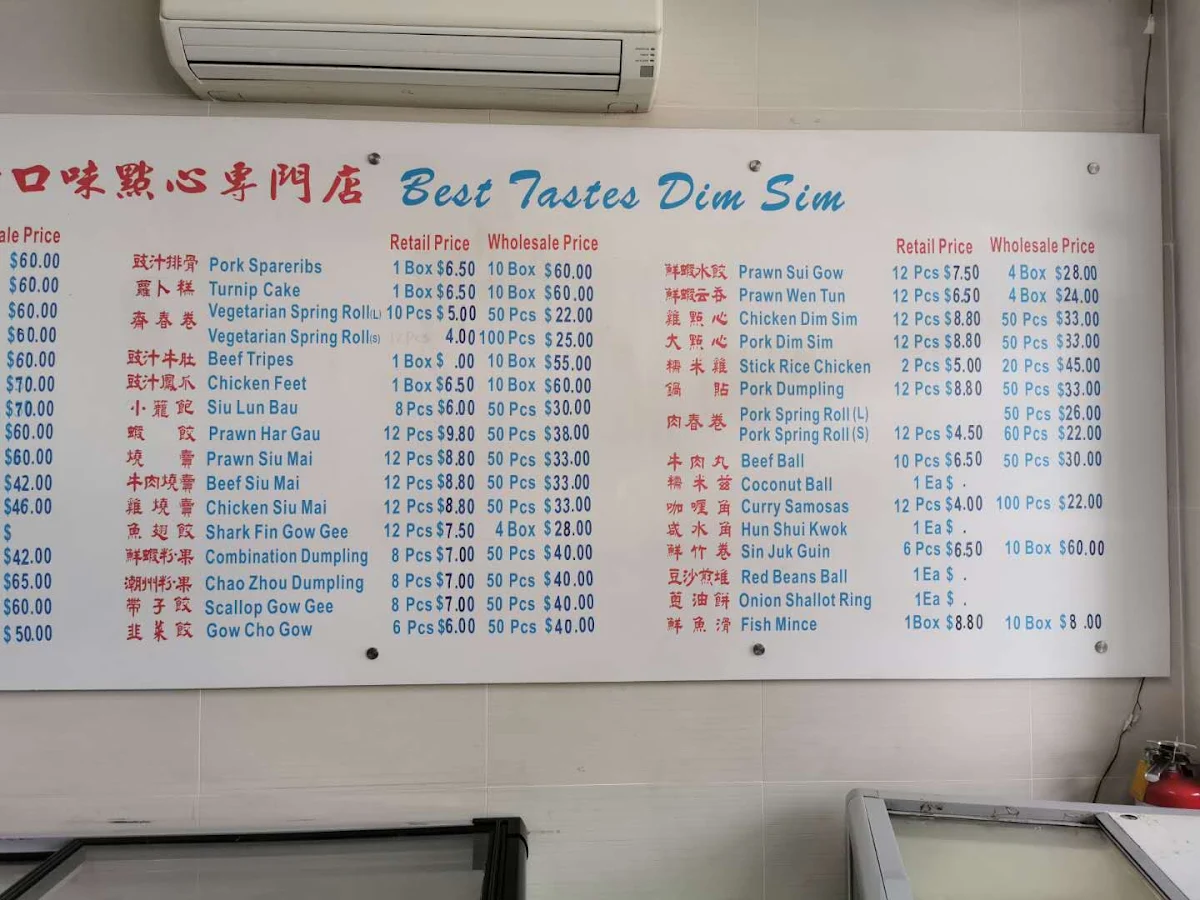 口味點心專門店 Best Tastes Dim Sim
ale Price
$60.00
$60.00
$60.00
$60.00
$60.00
$70.00
$70.00
$60.00
$60.00
$42.00
$46.00
$
$42.00
$65.00
$60.00
$50.00
Retail Price Wholesale Price
豉汁排骨 Pork Spareribs 1 Box $6.50 10 Box $60.00
蘿卜糕 Turnip Cake 1 Box $6.50 10 Box $60.00
齋春卷 Vegetarian Spring Roll(L) 10 Pcs $5.00 50 Pcs $22.00
Vegetarian Spring Roll(S) Pcs 4.00 100 Pcs $25.00
豉汁牛肚 Beef Tripes 1 Box $ .00 10 Box $55.00
豉汁鳳爪 Chicken Feet 1 Box $6.50 10 Box $60.00
小籠飽 Siu Lun Bau 8 Pcs $6.00 50 Pcs $30.00
蝦餃 Prawn Har Gau 12 Pcs $9.80 50 Pcs $38.00
燒賣 Prawn Siu Mai 12 Pcs $8.80 50 Pcs $33.00
牛肉燒賣 Beef Siu Mai 12 Pcs $8.80 50 Pcs $33.00
雞燒賣 Chicken Siu Mai 12 Pcs $8.80 50 Pcs $33.00
魚翅餃 Shark Fin Gow Gee 12 Pcs $7.50 4 Box $28.00
鮮蝦粉果 Combination Dumpling 8 Pcs $7.00 50 Pcs $40.00
潮州粉果 Chao Zhou Dumpling 8 Pcs $7.00 50 Pcs $40.00
帶子餃 Scallop Gow Gee 8 Pcs $7.00 50 Pcs $40.00
韭菜餃 Gow Cho Gow 6 Pcs $6.00 50 Pcs $40.00
Retail Price Wholesale Price
鮮蝦水餃 Prawn Sui Gow 12 Pcs $7.50 4 Box $28.00
鮮蝦云吞 Prawn Wen Tun 12 Pcs $6.50 4 Box $24.00
雞點心 Chicken Dim Sim 12 Pcs $8.80 50 Pcs $33.00
大點心 Pork Dim Sim 12 Pcs $8.80 50 Pcs $33.00
糯米雞 Stick Rice Chicken 2 Pcs $5.00 20 Pcs $45.00
鍋貼 Pork Dumpling 12 Pcs $8.80 50 Pcs $33.00
肉春卷 Pork Spring Roll (L) 50 Pcs $26.00
Pork Spring Roll (S) 12 Pcs $4.50 60 Pcs $22.00
牛肉丸 Beef Ball 10 Pcs $6.50 50 Pcs $30.00
糯米茲 Coconut Ball 1 Ea $ .
咖喱角 Curry Samosas 12 Pcs $4.00 100 Pcs $22.00
咸水角 Hun Shui Kwok 1 Ea $ .
鮮竹卷 Sin Juk Guin 6 Pcs $6.50 10 Box $60.00
豆沙煎堆 Red Beans Ball 1Ea $ .
蔥油餅 Onion Shallot Ring 1Ea $ .
鮮魚滑 Fish Mince 1Box $8.80 10 Box $8 .00